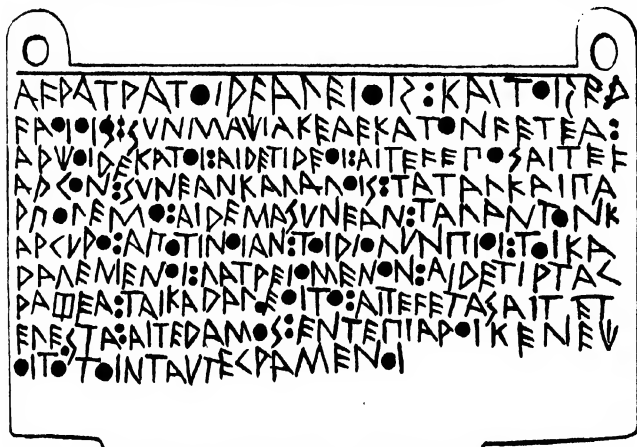 ΑϜΡΑΤΡΑΤΟΙΡϜΑΛΕΙΟΙΣ:ΚΑΙΤΟΙΣΕΡ
ϜΑΟΙΟΙΣ:ΣΥΝΜΑΨΙΑΚΕΑΕΚΑΤΟΝϜΕΤΕΑ:
ΑΡΨΟΙΔΕΚΑΤΟΙ:ΑΙΔΕΤΙΔΕΟΙ:ΑΙΤΕϜΕΠΟΣΑΙΤΕϜ
ΑΡΓΟΝ:ΣΥΝΕΑΝΚΑΛΑΛΟΙΣ:ΤΑΤΑΛΚΑΙΠΑ
ΡΠΟΛΕΜΟ:ΑΙΔΕΜΑΣΥΝΕΑΝ:ΤΑΛΑΝΤΟΝΚ
ΑΡΓΥΡΟ:ΑΠΟΤΙΝΟΙΑΝ:ΤΟΙΔΙΟΛΥΝΠΙΟΙ:ΤΟΙΚΑ
ΔΑΛΕΜΕΝΟΙ:ΛΑΤΡΕΙΟΜΕΝΟΝ:ΑΙΔΕΤΙΡΤΑΓ
ΡΑΦΕΑ:ΤΑΙΚΑΔΑΛΕΟΙΤΟ:ΑΙΤΕϜΕΤΑΣΑΙΤΕΤ
ΕΛΕΣΤΑ:ΑΙΤΕΔΑΜΟΣ:ΕΝΤΕΠΙΑΡΟΙΚΕΝΕΨ
ΟΙΤΟΤΟΙΝΤΑΥΤΕΓΡΑΜΕΝΟΙ